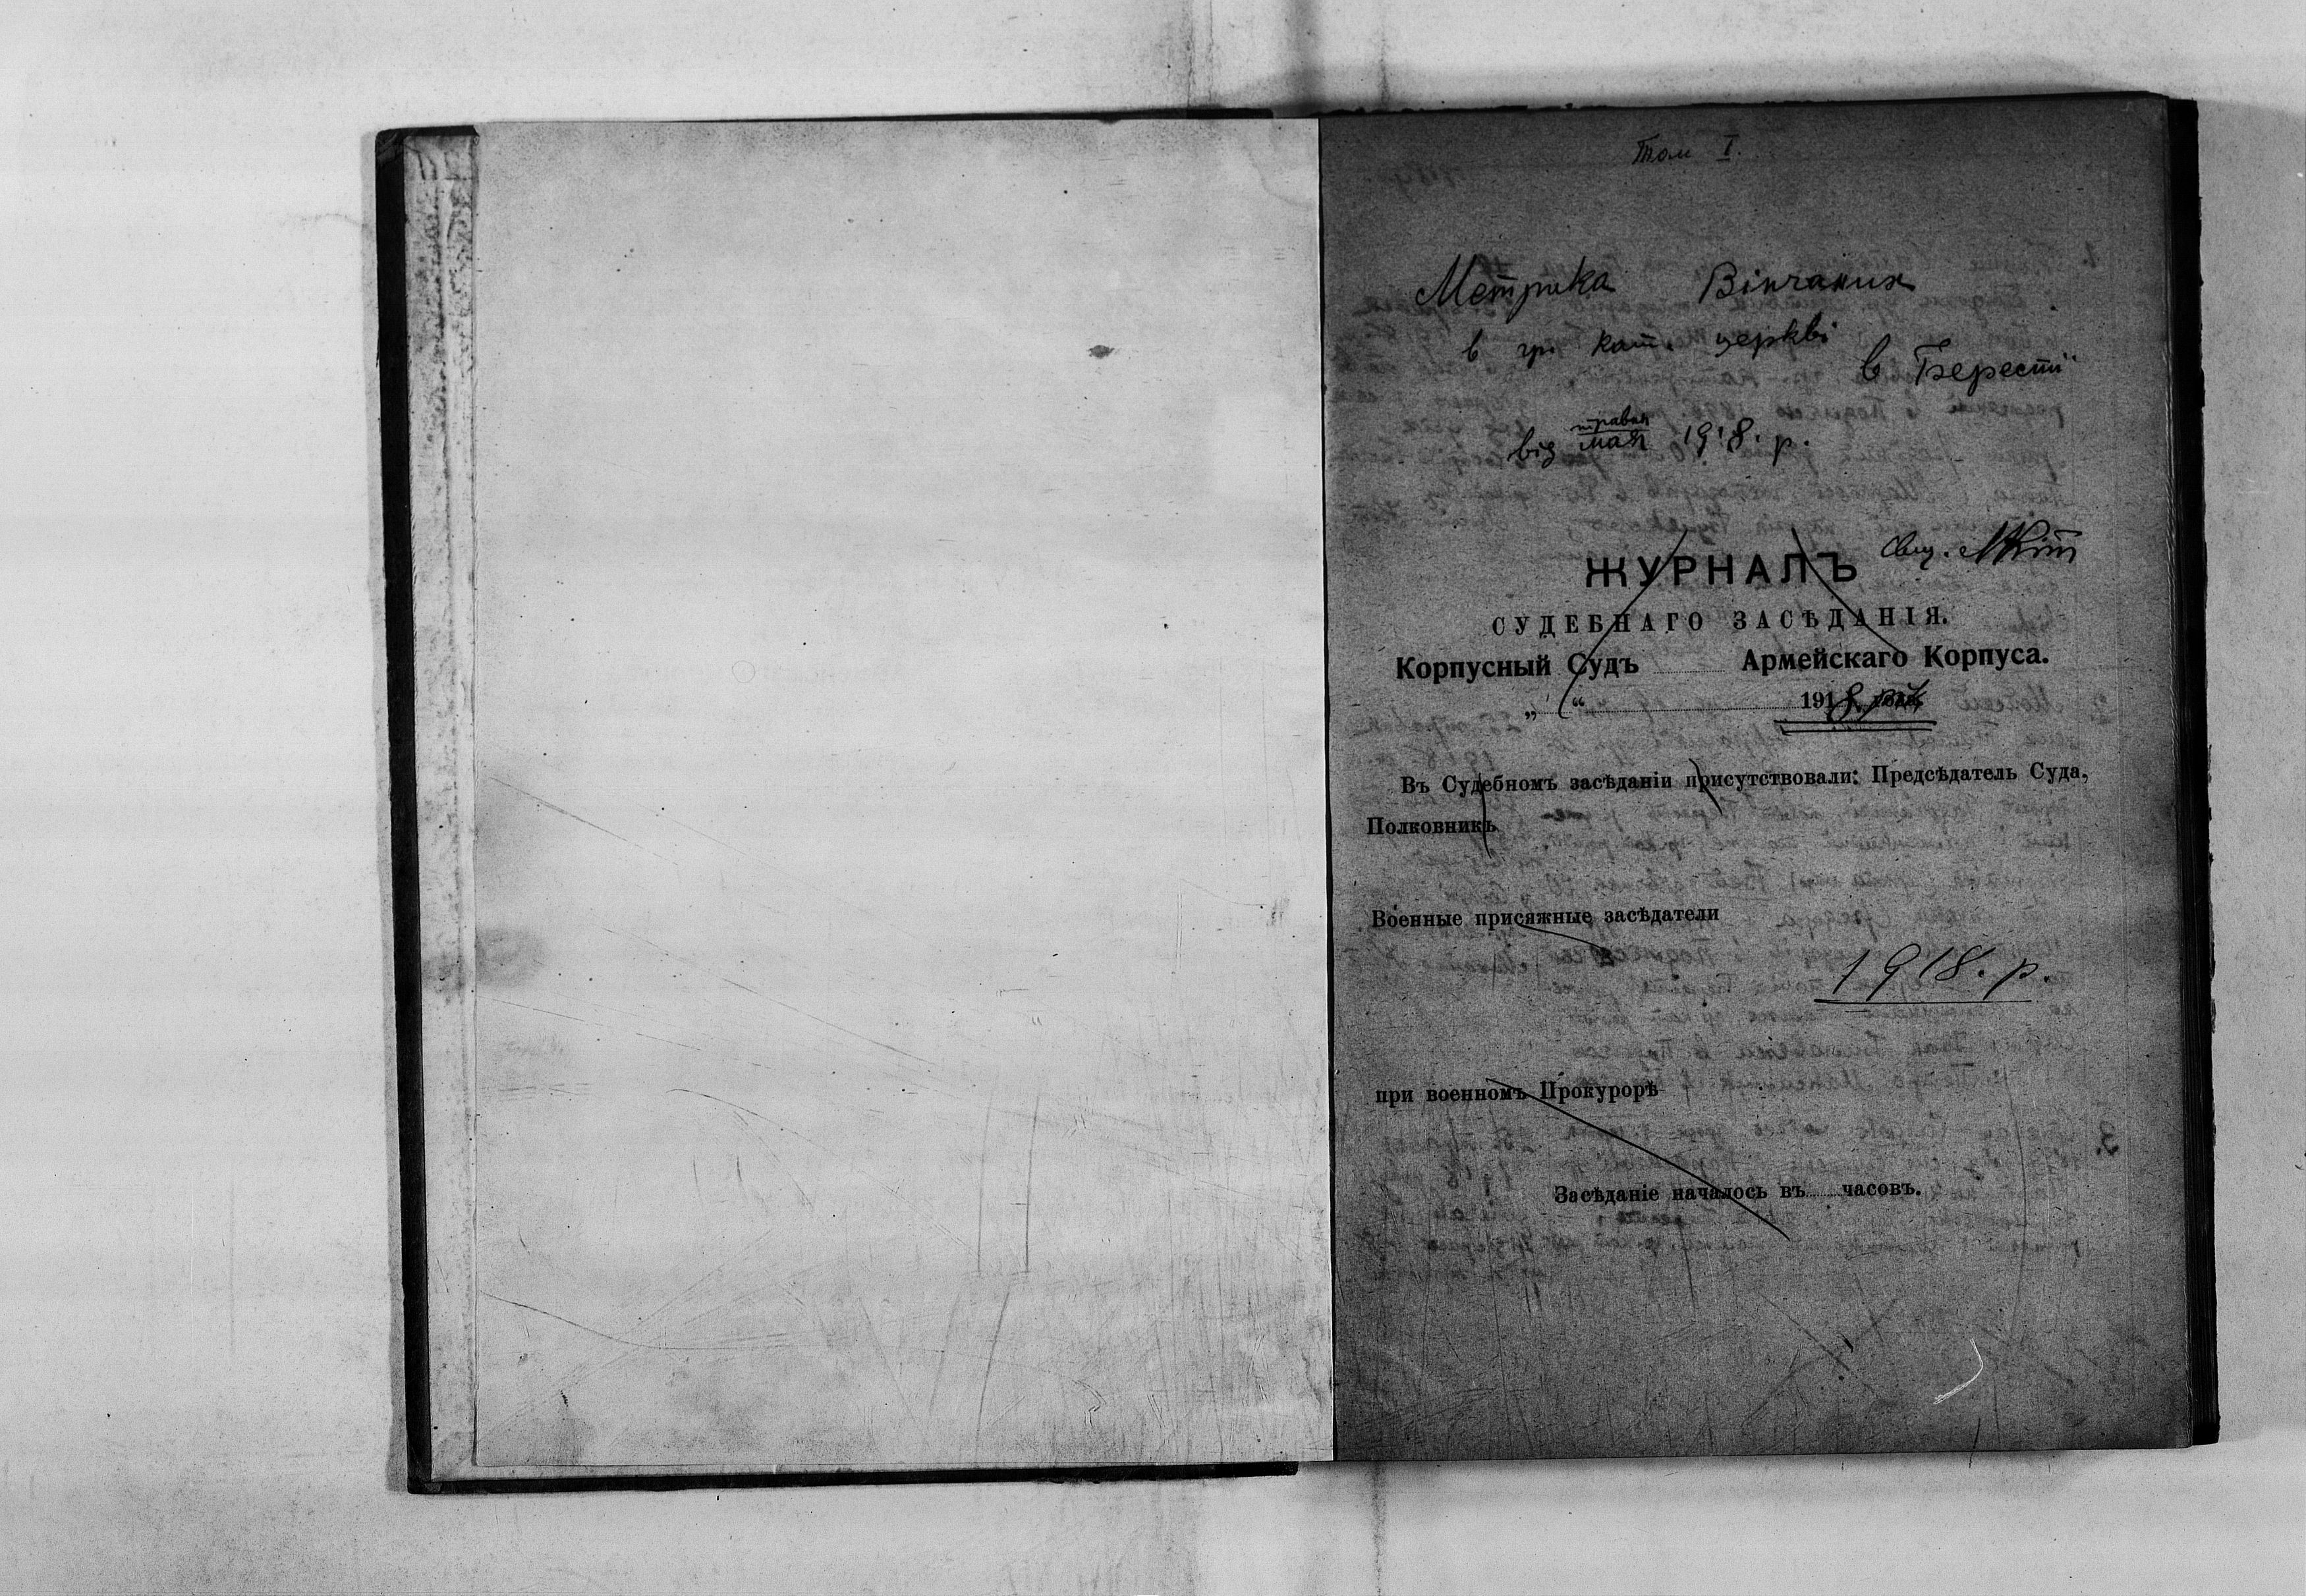 Том I.
Метрика Вінчаних
в гр. кат. церкві
в Берестї
травня
від мая 1918. р.
Свщ.
ЖУРНАЛЪ
СУДЕБНАГО ЗАСѢДАНІЯ.
Корпусный Судъ Армейскаго Корпуса.
„ “ 1918. рік
Въ Судебномъ засѣданіи присутствовали: Предсѣдатель Суда,
Полковникъ
Военные присяжные засѣдатели
1918. р.
при военномъ Прокурорѣ
Засѣданіе началось въ часовъ.